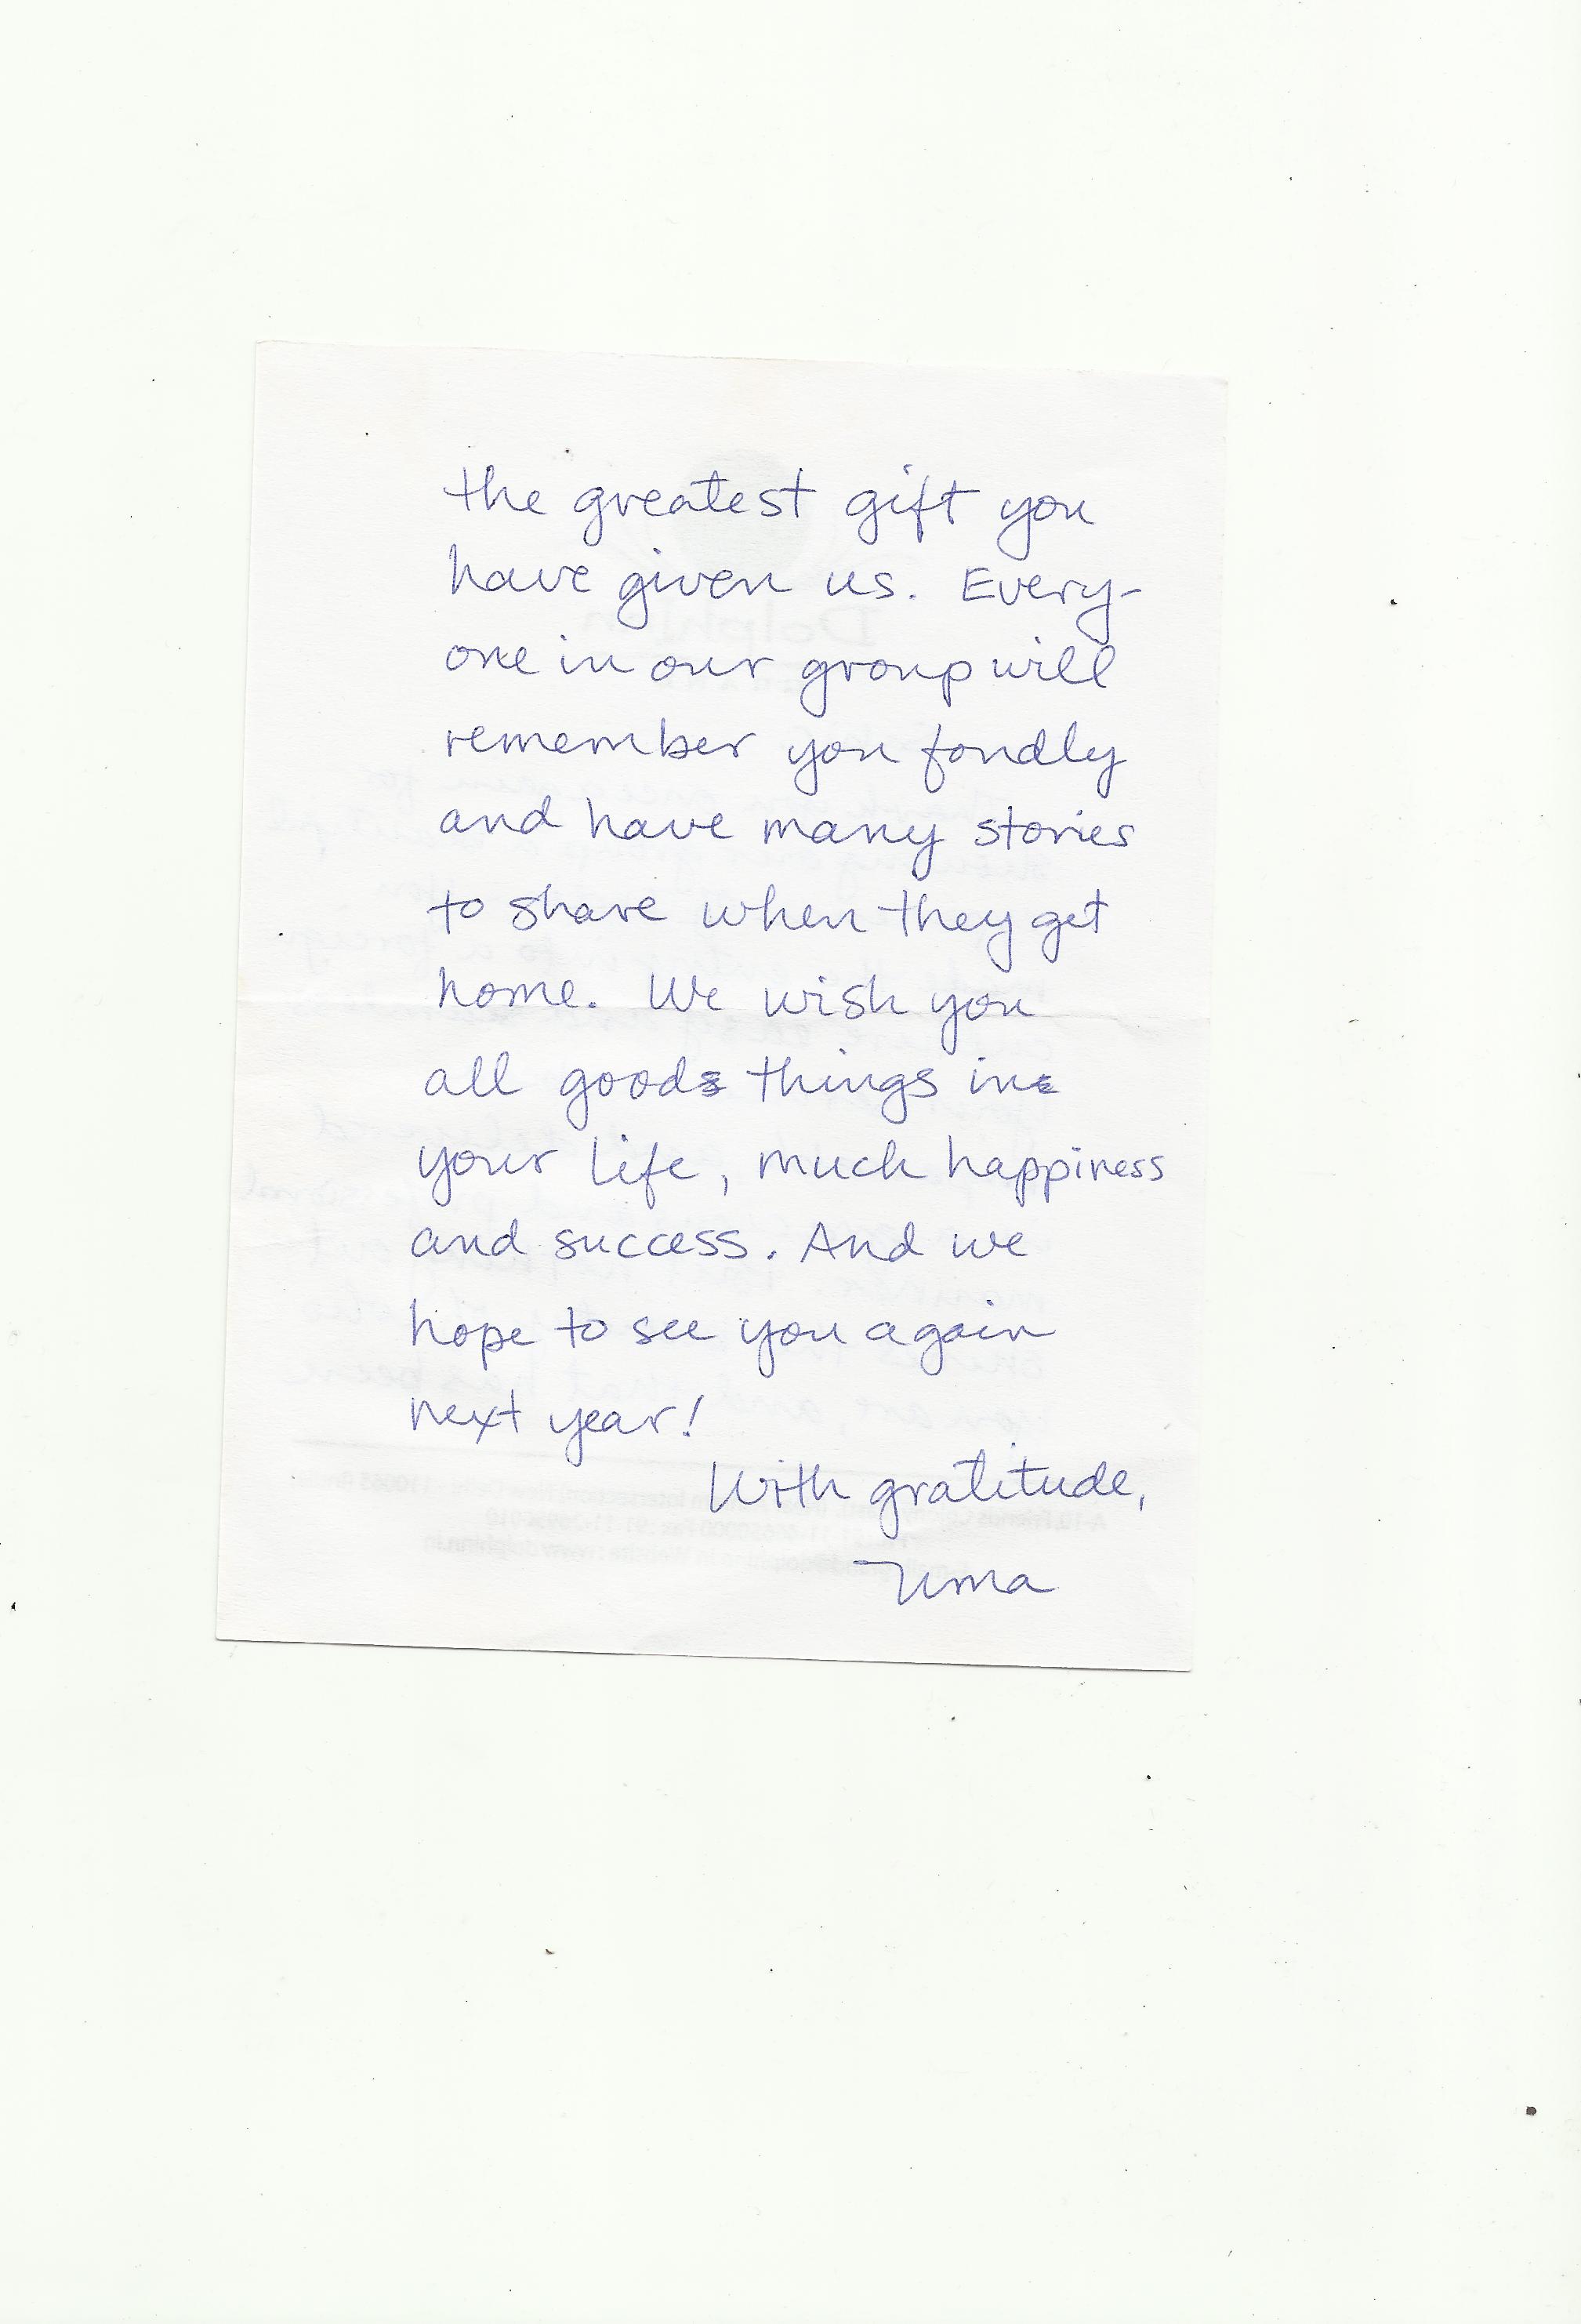 the greatest gift you
have given us. Every-
one in our group will
remember you fondly
and have many stories
to share when they get
home. We wish you
all good things in
your life, much happiness
and success. And we
hope to see you again
next year!
With gratitude,
Uma